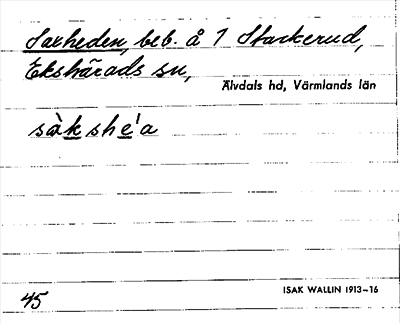 Saxheden, beb. å 1 Stackerud,
Ekshärads sn,
Älvdals hd, Värmlands län
sàkshe'a
45
ISAK WALLIN 1913–16